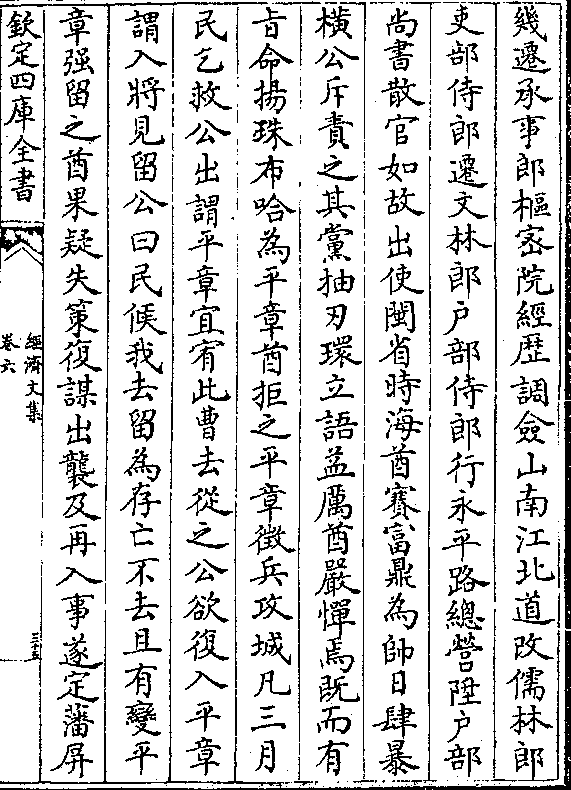 幾遷承事郎樞宻院經歴調僉山南江北道改儒林郎
吏部侍郎遷文林郎户部侍郎行永平路總營陞户部
尚書散官如故出使閩省時海酋賽富鼎為帥日肆暴
橫公斥責之其黨抽刃環立語益厲酋嚴憚焉既而有
㫖命揚珠布哈為平章酋拒之平章徴兵攻城凡三月
民乞救公出謂平章宜宥此曹去從之公欲復入平章
謂入將見留公曰民候我去留為存亡不去且有變平
章强留之酋果疑失策復謀出襲及再入事遂定藩屏
欽定四庫全書
經濟文集
卷六
三十五